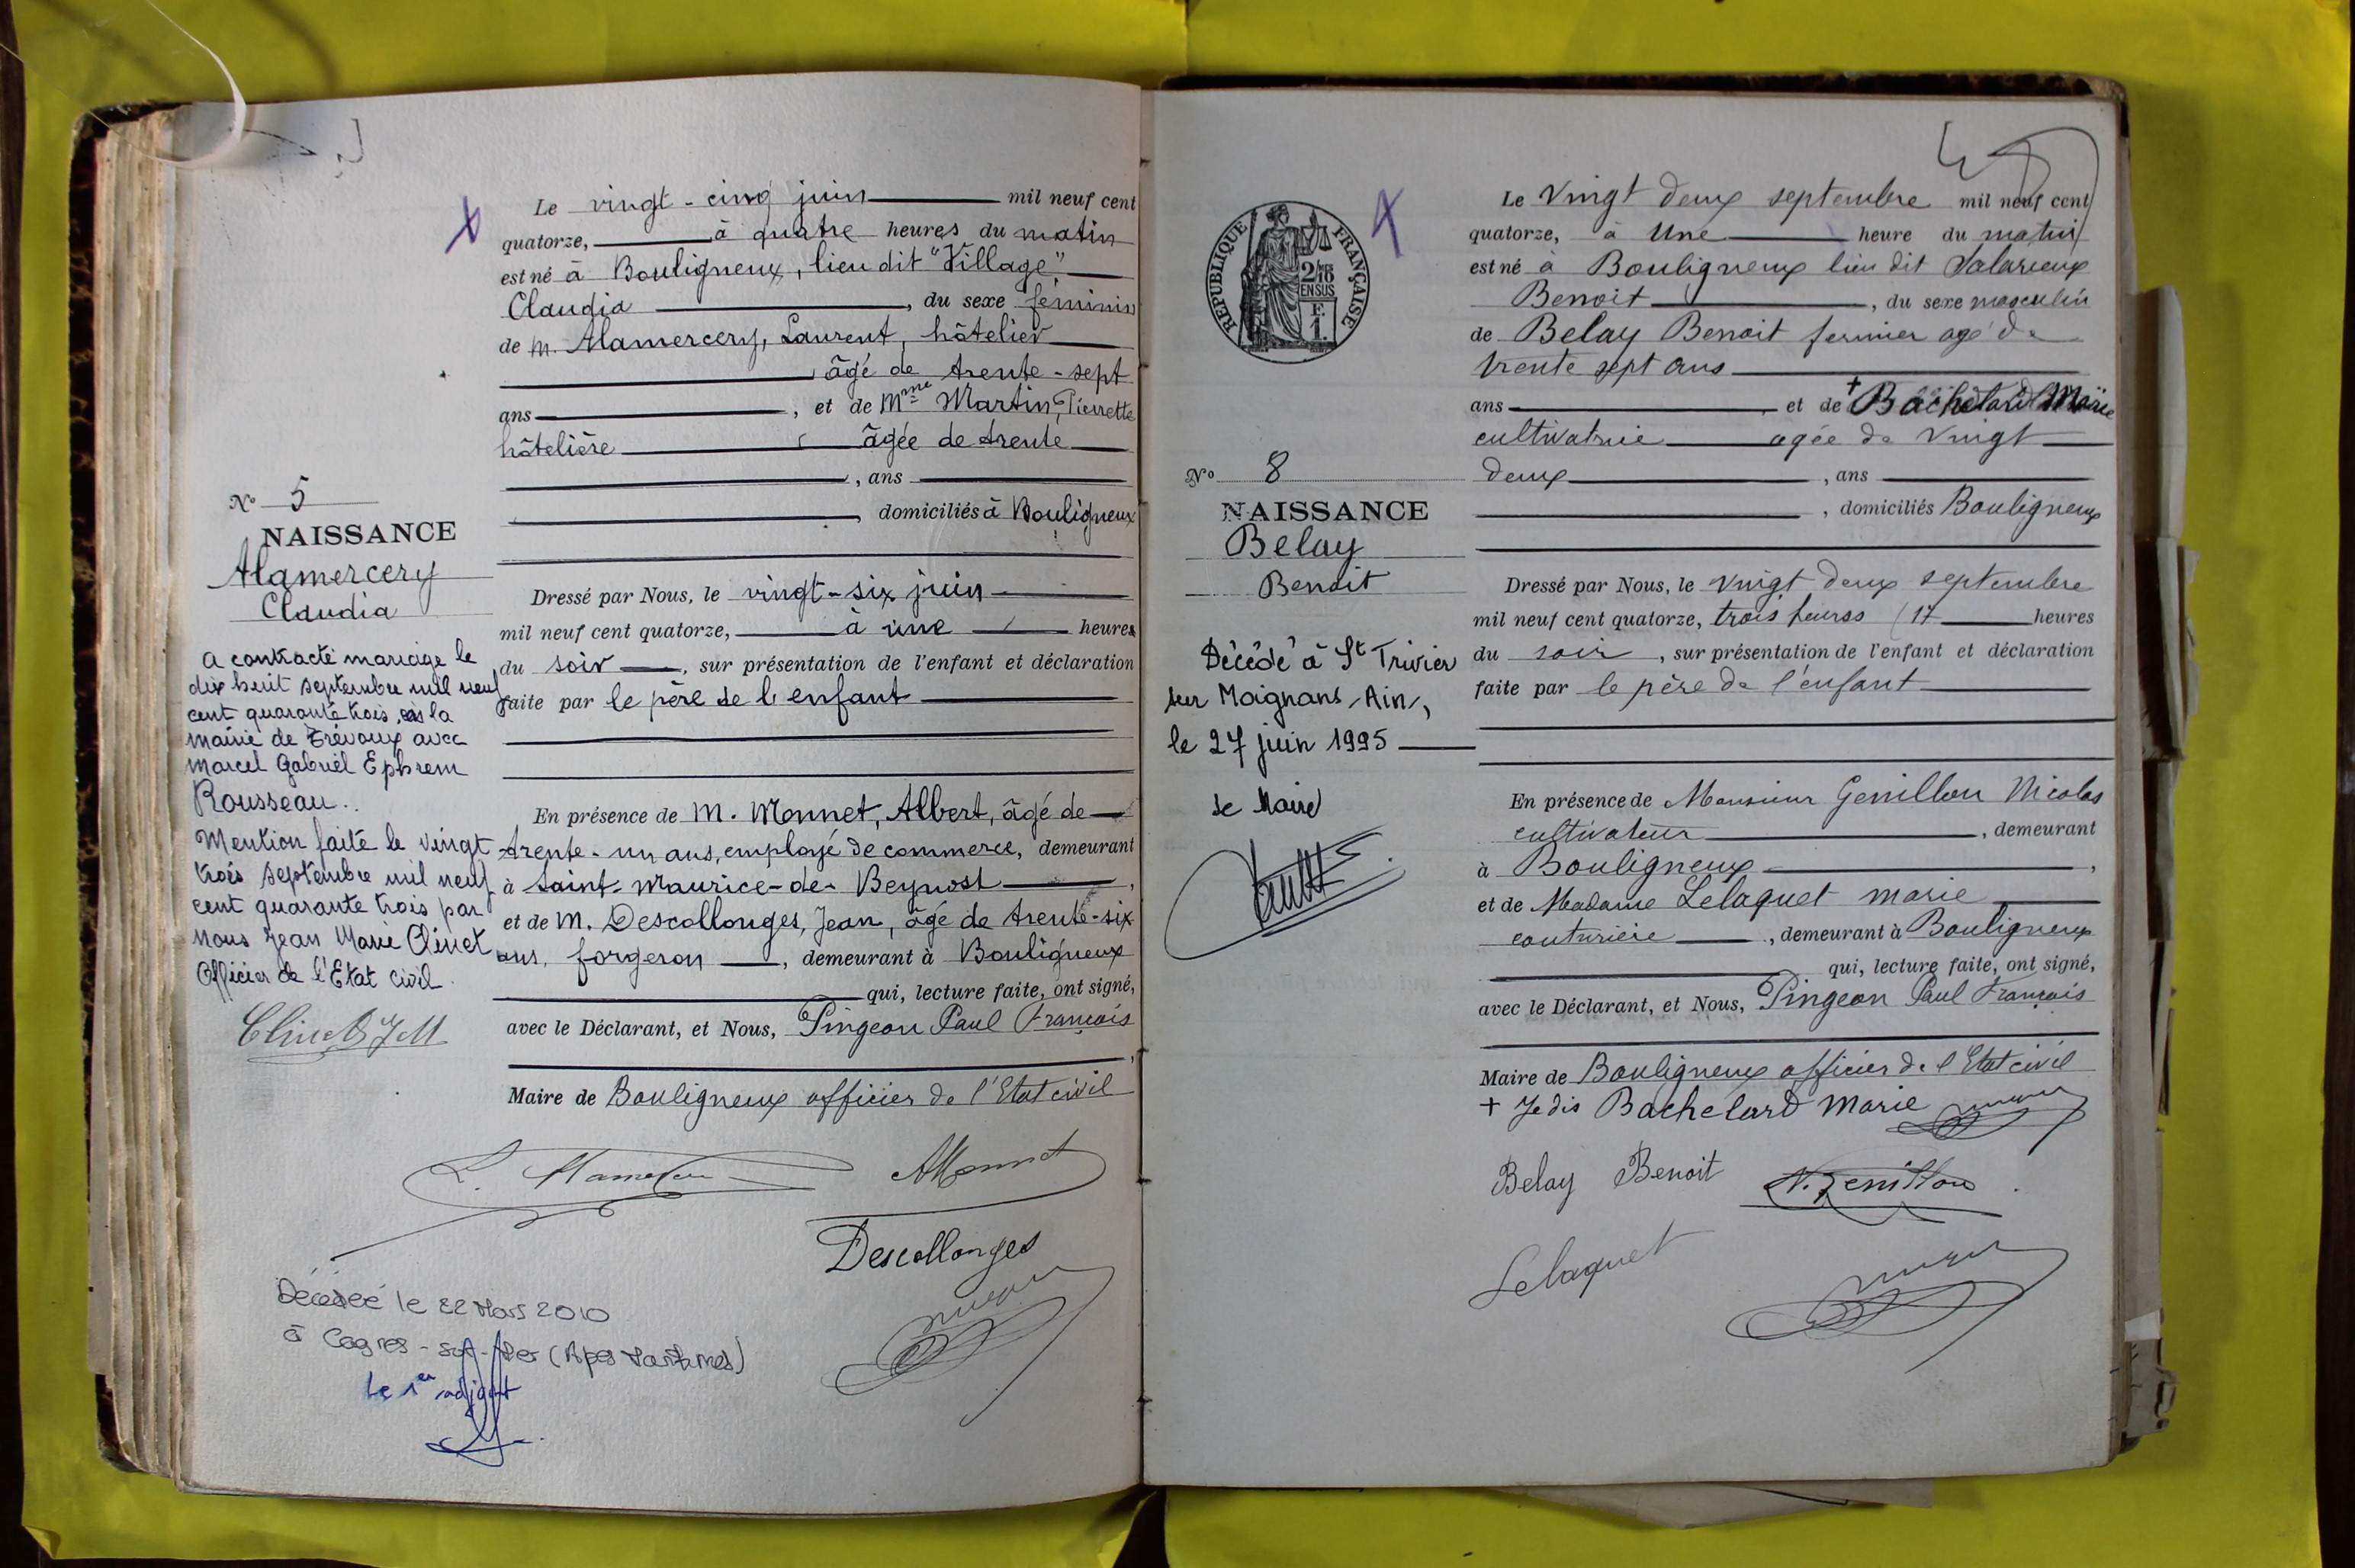 Le vingt-cinq juin mil neuf cent
quatorze, à quatre heures du matin
est né à Bouligneux, lieu dit "Village"
Claudia, du sexe féminin
de M. Alamercery, Laurent, hôtelier
âgé de trente-sept
ans, et de Mme Martin, Pierrette
hôtelière âgée de trente
, ans
, domiciliés à Bouligneux
No 5
NAISSANCE
Alamercery
Claudia
Dressé par Nous, le vingt-six juin
mil neuf cent quatorze, à une heures
du soir, sur présentation de l'enfant et déclaration
faite par le père de l'enfant
A contracté mariage le
dix huit septembre mil neuf
cent quarante trois, à la
mairie de Trévoux avec
Marcel Gabriel Ephrem
Rousseau..
Mention faite le vingt
trois septembre mil neuf
cent quarante trois par
nous Jean Marie Clinet
Officier de l'Etat civil.
Clinet JM
En présence de M. Monnet, Albert, âgé de
trente-un ans, employé de commerce, demeurant
à Saint-Maurice-de-Beynost,
et de M. Descollonges, Jean, âgé de trente-six
ans, forgeron, demeurant à Bouligneux
qui, lecture faite, ont signé,
avec le Déclarant, et Nous, Pingeon Paul François
,
Maire de Bouligneux officier de l'Etat civil
AMonnet
Descollonges
Décédée le 22 Mars 2010
à Cagnes-sur-Mer (Alpes Maritimes)
Le 1er adjoint
RÉPUBLIQUE FRANÇAISE
2/10
EN SUS
F.
1.
Le Vingt deux septembre mil neuf cent
quatorze, à Une heure du matin
est né à Bouligneux lieu dit Salarieux
Benoit, du sexe masculin
de Belay Benoit fermier agé de
trente sept ans
ans et de + Bachelard Marie
cultivatrice agée de Vingt
deux, ans
, domiciliés Bouligneux
No 8
NAISSANCE
Belay
Benoit
Dressé par Nous, le vingt deux septembre
mil neuf cent quatorze, trois heures heures
du soir, sur présentation de l'enfant et déclaration
faite par le père de l'enfant
Décédé à St Trivier
sur Moignans, Ain,
le 27 juin 1995
Le Maire
En présence de Monsieur Genillon Nicolas
cultivateur, demeurant
à Bouligneux,
et de Madame Lelaquet Marie
couturière, demeurant à Bouligneux
qui, lecture faite, ont signé,
avec le Déclarant, et Nous, Pingeon Paul François
Maire de Bouligneux officier de l'Etat civil
+ Je dis Bachelard Marie
Belay Benoit N. Genillon
Lelaquet